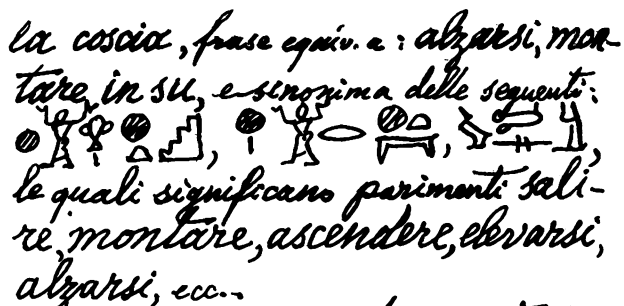 la coscia, frase equiv. a: alzarsi, mon-
tare, in su, e sinonima delle seguenti:
le quali significano parimenti sali-
re, montare, ascendere, elevarsi,
alzarsi, ecc..